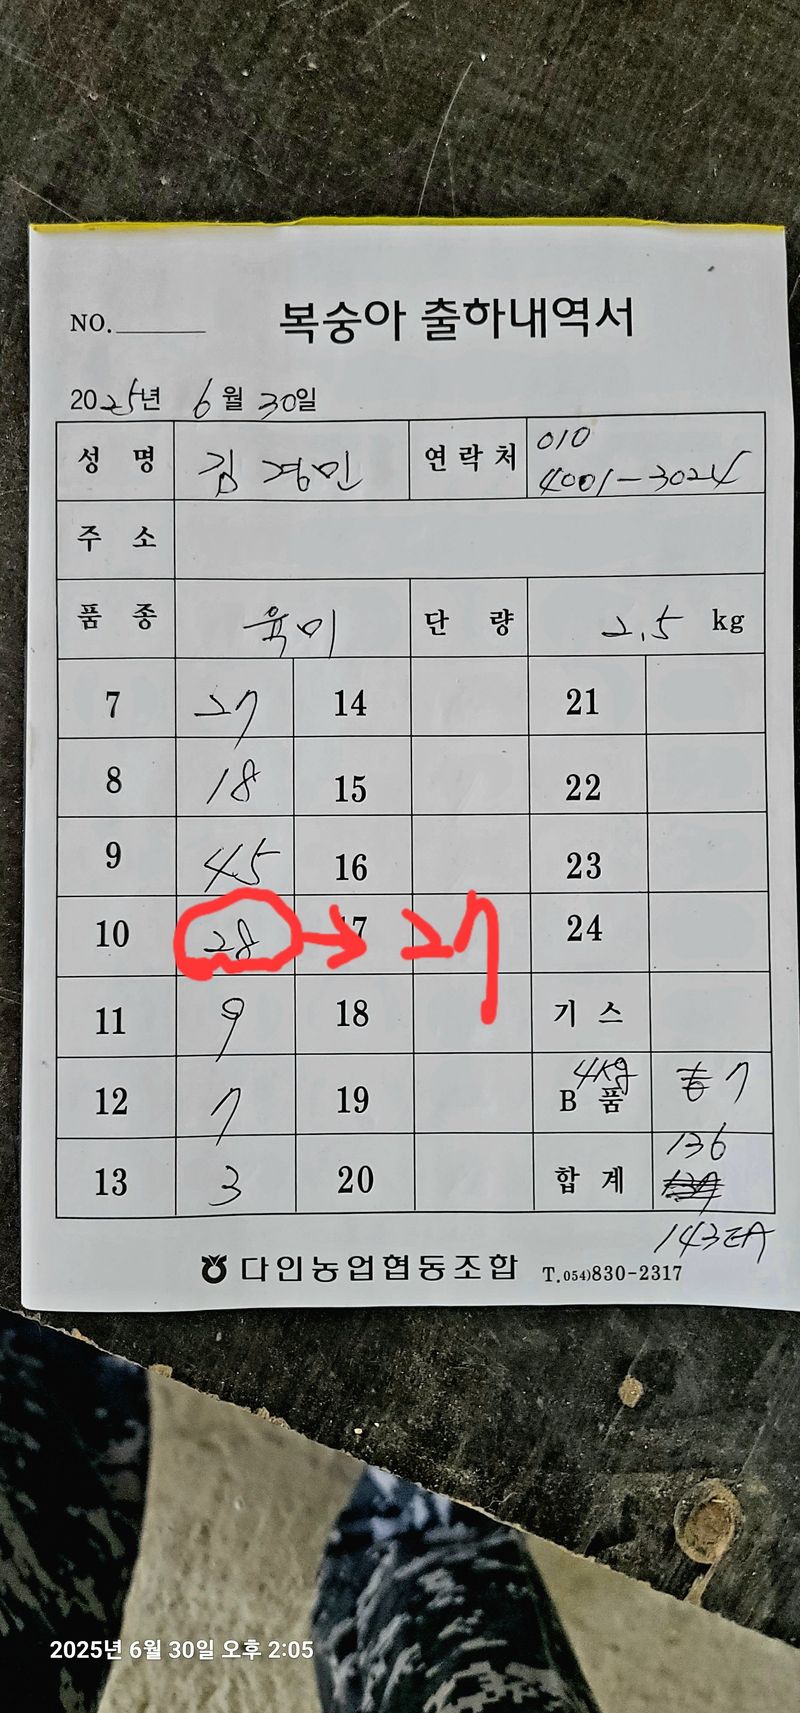 NO. 복숭아 출하내역서
2025년 6월 30일
성 명 김경민 연락처 010 4001-3024
주 소
품 종 육미 단 량 2.5 kg
7 27 14 21
8 18 15 22
9 45 16 23
10 28 → 27 17 24
11 9 18 기 스
12 7 19 B 품 4Kg 7
13 3 20 합 계 136
143EA
다인농업협동조합 T.054)830-2317
2025년 6월 30일 오후 2:05